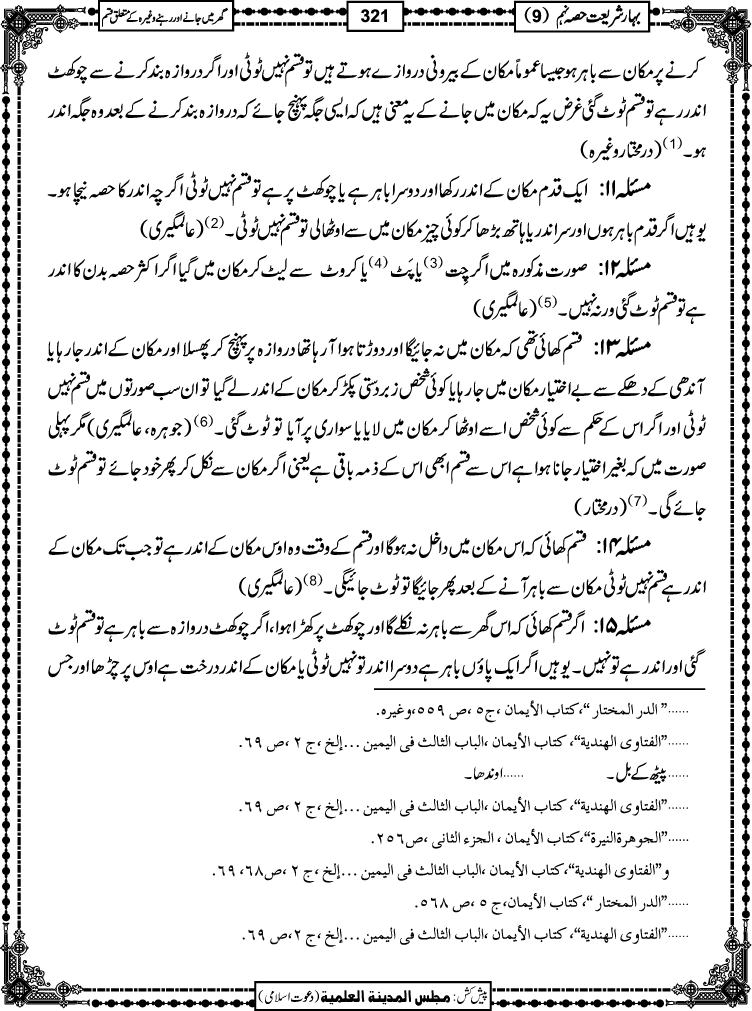 بہارِ شریعت حصہ نہم (9)
321
گھر میں جانے اور رہنے وغیرہ کے متعلق قسم
کرنے پر مکان سے باہر ہو جیسا عموماً مکان کے بیرونی دروازے ہوتے ہیں تو قسم نہیں ٹوٹی اور اگر دروازہ بند کرنے سے چوکھٹ
اندر رہے تو قسم ٹوٹ گئی غرض یہ کہ مکان میں جانے کے یہ معنی ہیں کہ ایسی جگہ پہنچ جائے کہ دروازہ بند کرنے کے بعد وہ جگہ اندر
ہو۔ (1) (درمختار وغیرہ)
مسئلہ ۱۱: ایک قدم مکان کے اندر رکھا اور دوسرا باہر ہے یا چوکھٹ پر ہے تو قسم نہیں ٹوٹی اگرچہ اندر کا حصہ نیچا ہو۔
یوہیں اگر قدم باہر ہوں اور سر اندر یا ہاتھ بڑھا کر کوئی چیز مکان میں سے اوٹھا لی تو قسم نہیں ٹوٹی۔ (2) (عالمگیری)
مسئلہ ۱۲: صورت مذکورہ میں اگر چِت (3) یا پَٹ (4) یا کروٹ سے لیٹ کر مکان میں گیا اگر اکثر حصہ بدن کا اندر
ہے تو قسم ٹوٹ گئی ورنہ نہیں۔ (5) (عالمگیری)
مسئلہ ۱۳: قسم کھائی تھی کہ مکان میں نہ جائیگا اور دوڑتا ہوا آ رہا تھا دروازہ پر پہنچ کر پھسلا اور مکان کے اندر جا رہا یا
آندھی کے دھکے سے بے اختیار مکان میں جا رہا یا کوئی شخص زبردستی پکڑ کر مکان کے اندر لے گیا تو ان سب صورتوں میں قسم نہیں
ٹوٹی اور اگر اس کے حکم سے کوئی شخص اسے اوٹھا کر مکان میں لایا یا سواری پر آیا تو ٹوٹ گئی۔ (6) (جوہرہ، عالمگیری) مگر پہلی
صورت میں کہ بغیر اختیار جانا ہوا ہے اس سے قسم ابھی اس کے ذمہ باقی ہے یعنی اگر مکان سے نکل کر پھر خود جائے تو قسم ٹوٹ
جائے گی۔ (7) (درمختار)
مسئلہ ۱۴: قسم کھائی کہ اس مکان میں داخل نہ ہوگا اور قسم کے وقت وہ اوس مکان کے اندر ہے تو جب تک مکان کے
اندر ہے قسم نہیں ٹوٹی مکان سے باہر آنے کے بعد پھر جائیگا تو ٹوٹ جائیگی۔ (8) (عالمگیری)
مسئلہ ۱۵: اگر قسم کھائی کہ اس گھر سے باہر نہ نکلے گا اور چوکھٹ پر کھڑا ہوا، اگر چوکھٹ دروازہ سے باہر ہے تو قسم ٹوٹ
گئی اور اندر ہے تو نہیں۔ یوہیں اگر ایک پاؤں باہر ہے دوسرا اندر تو نہیں ٹوٹی یا مکان کے اندر درخت ہے اوس پر چڑھا اور جس
......"الدر المختار"، كتاب الأيمان، ج٥، ص ٥٥٩، وغيره.
......"الفتاوى الهندية"، كتاب الأيمان، الباب الثالث فى اليمين ...إلخ، ج ٢، ص ٦٩.
......پیٹھ کے بل۔ ......اوندھا۔
......"الفتاوى الهندية"، كتاب الأيمان، الباب الثالث فى اليمين ...إلخ، ج ٢، ص ٦٩.
......"الجوهرة النيرة"، كتاب الأيمان، الجزء الثانى، ص٢٥٦.
و"الفتاوى الهندية"، كتاب الأيمان، الباب الثالث فى اليمين ...إلخ، ج ٢، ص٦٨، ٦٩.
......"الدر المختار"، كتاب الأيمان، ج ٥، ص ٥٦٨.
......"الفتاوى الهندية"، كتاب الأيمان، الباب الثالث فى اليمين ...إلخ، ج ٢، ص ٦٩.
پیش کش: مجلس المدينة العلمية (دعوت اسلامی)